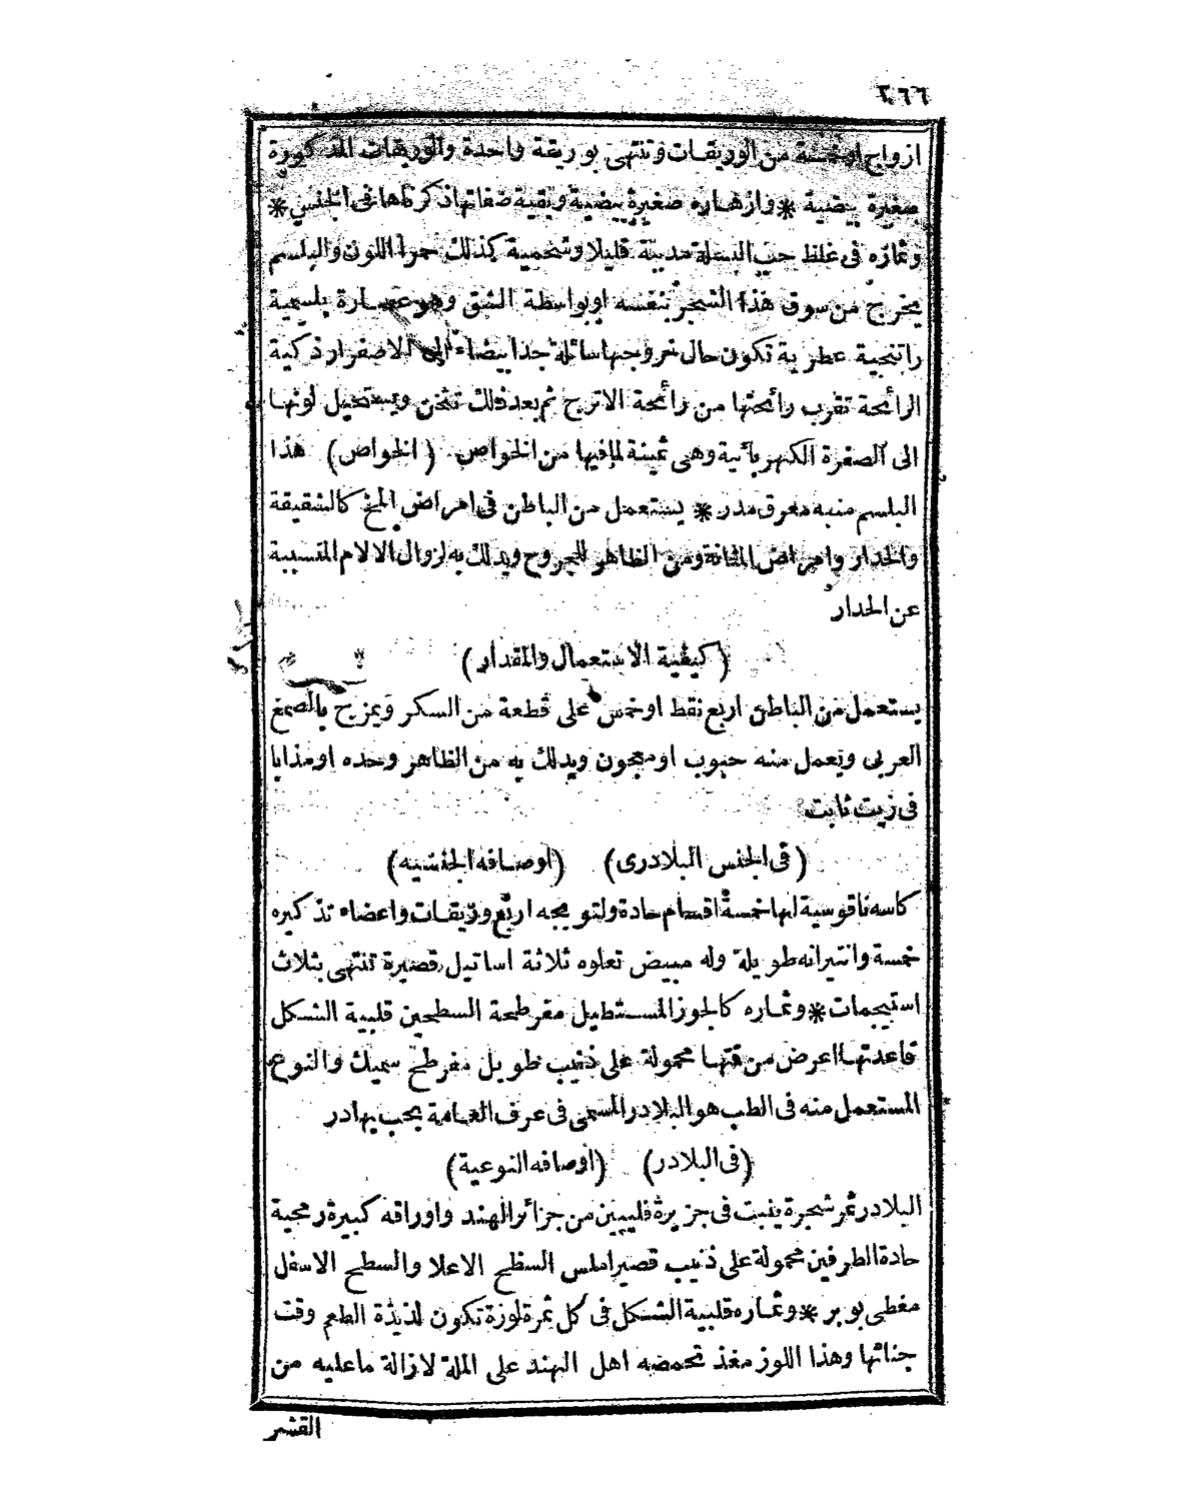 ٢٦٦
ازواج او خمسة من الوريقات وتنتهى بوريقة واحدة والوريقات المذكورة
صغيرة بيضية * وازهاره صغيرة بيضية وبقية صفاتها ذكرناها فى الجنس *
وثماره فى غلظ حب البسلة مدببة قليلا وشحمية كذلك حمرا اللون والبلسم
يخرج من سوق هذا الشجر بنفسه او بواسطة الشق وهو عصارة بلسمية
راتنجية عطرية تكون حال خروجها سائلة جدا بيضاء الى الاصفرار ذكية
الرائحة تقرب رائحتها من رائحة الاترج ثم بعد ذلك تثخن ويستحيل لونها
الى الصفرة الكهربائية وهى ثمينة لما فيها من الخواص (الخواص) هذا
البلسم منبه معرق مدر * يستعمل من الباطن فى امراض المخ كالشقيقة
والخدار وامراض المثانة ومن الظاهر للجروح ويدلك به لزوال الالام المتسببة
عن الحدار
(كيفية الاستعمال والمقدار)
يستعمل من الباطن اربع نقط او خمس على قطعة من السكر ويمزج بالصمغ
العربى ويعمل منه حبوب او معجون ويدلك به من الظاهر وحده او مذابا
فى زيت ثابت
(فى الجنس البلادرى) (اوصافه الجنسيه)
كاسه ناقوسية لها خمسة اقسام حادة ولتويجه اربع وريقات واعضاء تذكيره
خمسة وانتيراته طويلة وله مبيض تعلوه ثلاثة اساتيل قصيرة تنتهى بثلاث
استيجمات * وثماره كالجوز المستطيل مفرطحة السطحين قلبية الشكل
قاعدتها اعرض من قتها محمولة على ذنيب طويل مفرطح سميك والنوع
المستعمل منه فى الطب هو البلادر المسمى فى عرف العامة بحب بهادر
(فى البلادر) (اوصافه النوعية)
البلادر ثمر شجرة ينبت فى جزيرة فليبين من جزائر الهند واوراقه كبيرة رمحية
حادة الطرفين محمولة على ذنيب قصير املس السطح الاعلا والسطح الاسفل
مغطى بوبر * وثماره قلبية الشكل فى كل ثمرة لوزة تكون لذيذة الطعم وقت
جنائها وهذا اللوز مغذ تحمضه اهل الهند على الملة لازالة ما عليه من
القشر